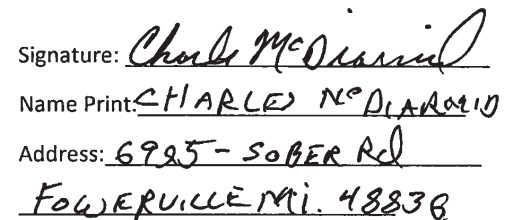 Signature: Charles McDiarmid
Name Print: CHARLES McDIARMID
Address: 6985 - SOBER Rd
FOWERVILLE Mi. 48836